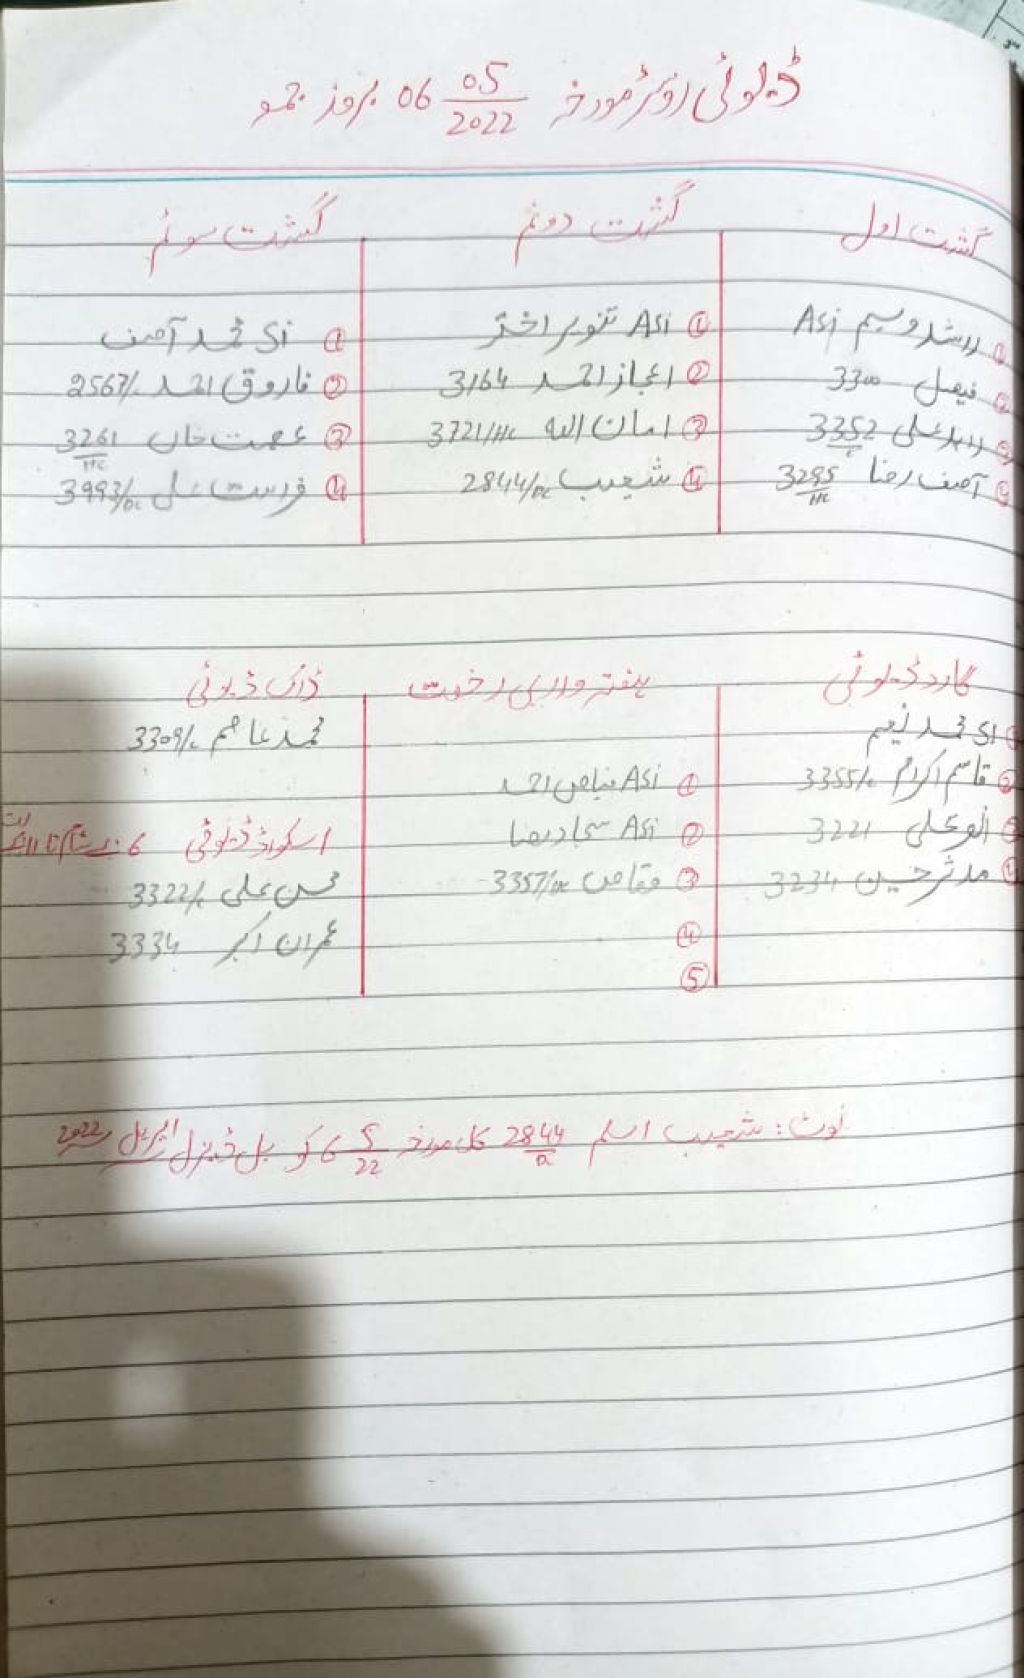 ڈیوٹی روسٹر مورخہ 06 05/2022 بروز جمعہ
گشت اول
① راشد وسیم Asi
② فیصل 3300
③ زاہد علی 3352/C
④ آصف رضا 3295/HC
گشت دوئم
① Asi تنویر اختر
② اعجاز احمد 3164
③ امان اللہ 3721/HC
④ شعیب 2844/DC
گشت سوئم
① Si محمد آصف
② فاروق احمد 2567/c
③ عصمت خان 3261/HC
④ فراست علی 3993/DC
گارد ڈیوٹی
① Si محمد نعیم
② قاسم اکرام 3355/c
③ علی 3221
④ مدثر حسین 3234
ہفتہ واری رخصت
① Asi فیاض احمد
② Asi سجاد رضا
③ وقاص 3357/DC
④
⑤
ڈاک ڈیوٹی
محمد عاصم 3309/c
اسکواڈ ڈیوٹی 6 بجے شام تا 11 بجے رات
محسن علی 3322/c
عمران اکبر 3334
نوٹ: شعیب اسلم 2844/C کل مورخہ 6 5/22 کو بل ڈیزل اپریل 2022